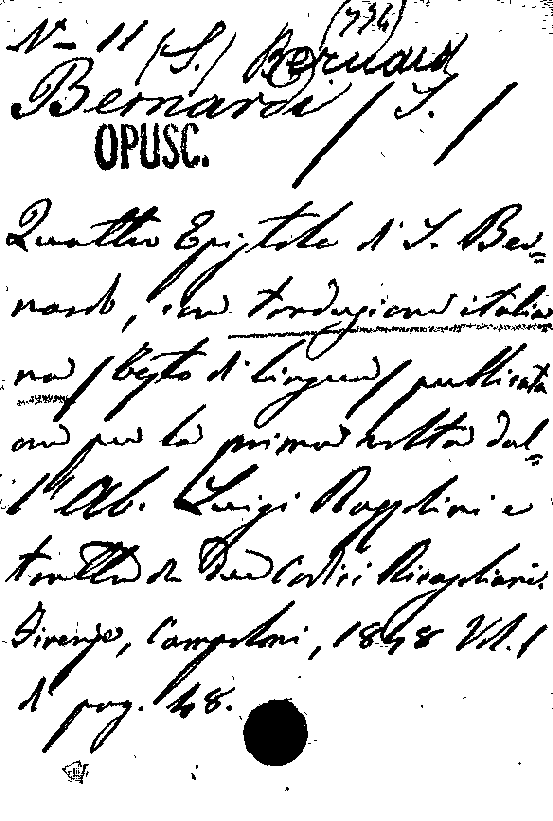 (794)
N.º 11 (S.) Bernard
Bernardi / S. /
OPUSC.
Quattro Epistole di S. Ber=
nardo, con traduzione italia
na / testo di lingua / pubblicata
ora per la prima volta dal=
l'Ab. Luigi Razzolini e
tratta da due Codici Riccardiani.
Firenze, Campolmi, 1848 Vol. 1
di pag. 48.